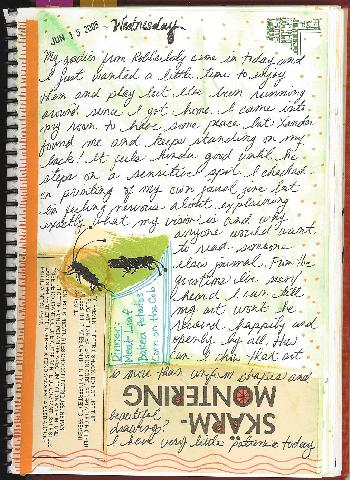 JUN 15 2005 - Wednesday
My goodies from Rubberbaby came in today and
I just wanted a little time to enjoy
them and play but I've been running
around since I got home. I came into
my room to have some peace but Xander
found me and keeps standing on my
back! It feels kinda good until he
steps on a sensitive spot. I checked
on printing of my own journal zine but
I'm feeling nervous about explaining
exactly what my vision is and why
anyone would want
to read someone
else's journal. From the
questions I've seen/
heard I can tell
my art won't be
received happily and
openly by all. How
can I show that art
is more than uniform shapes and
beautiful
drawings?
I have very little patience today
Dinner:
Meat Loaf
Baked Potatoes
Corn on the Cob
SKÄRM-
MONTERING